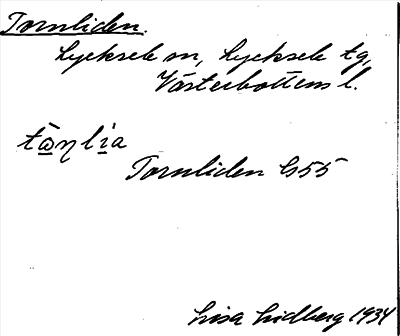 Tornliden.
Lycksele sn, Lycksele tg,
Västerbottens l.
tå̀ṇlia
Tornliden G55
Lisa Lidberg 1934